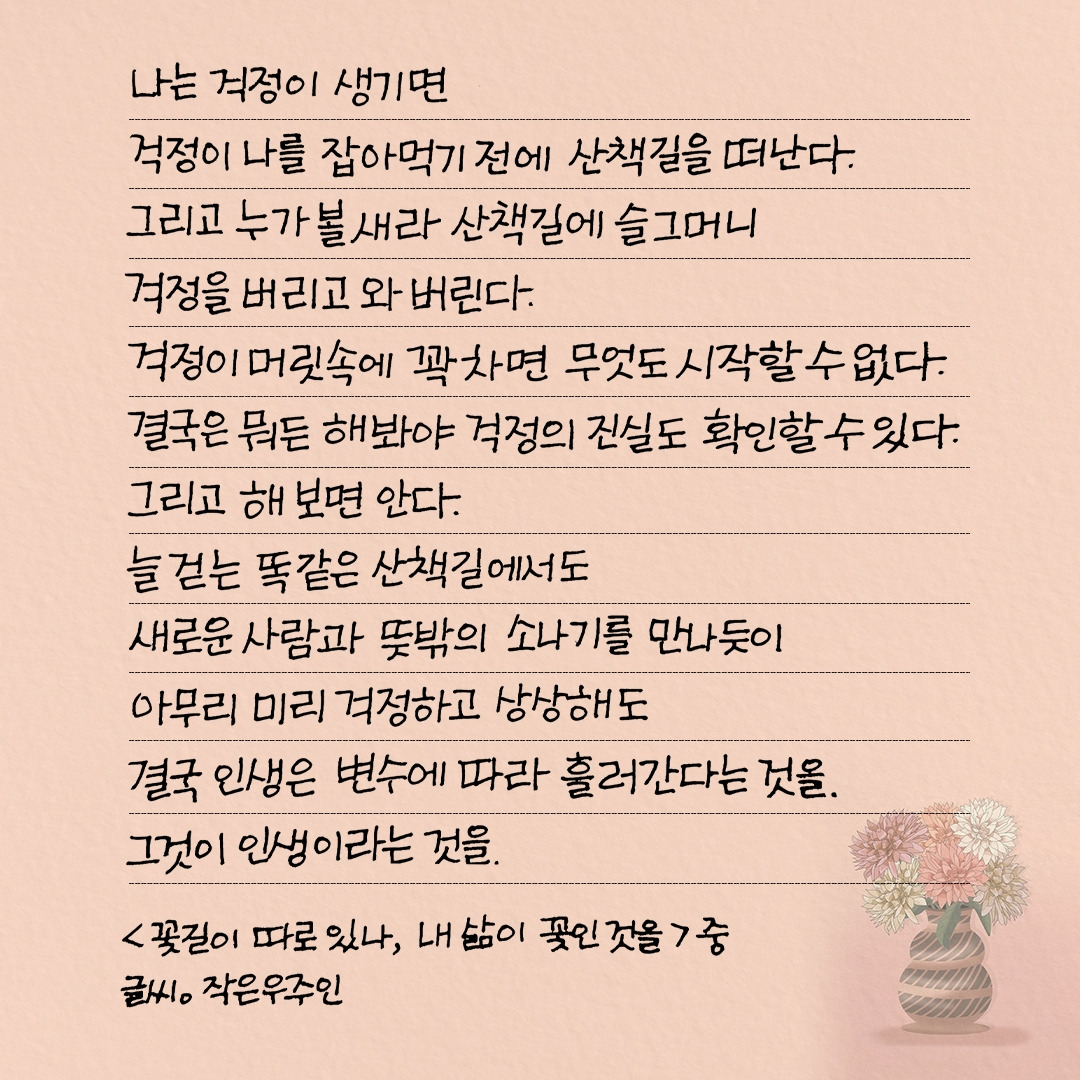 나는 걱정이 생기면
걱정이 나를 잡아먹기 전에 산책길을 떠난다.
그리고 누가 볼새라 산책길에 슬그머니
걱정을 버리고 와 버린다.
걱정이 머릿속에 꽉 차면 무엇도 시작할 수 없다.
결국은 뭐든 해봐야 걱정의 진실도 확인할 수 있다.
그리고 해 보면 안다.
늘 걷는 똑같은 산책길에서도
새로운 사람과 뜻밖의 소나기를 만나듯이
아무리 미리 걱정하고 상상해도
결국 인생은 변수에 따라 흘러간다는 것을.
그것이 인생이라는 것을.
<꽃길이 따로 있나, 내 삶이 꽃인 것을> 중
글씨。작은우주인